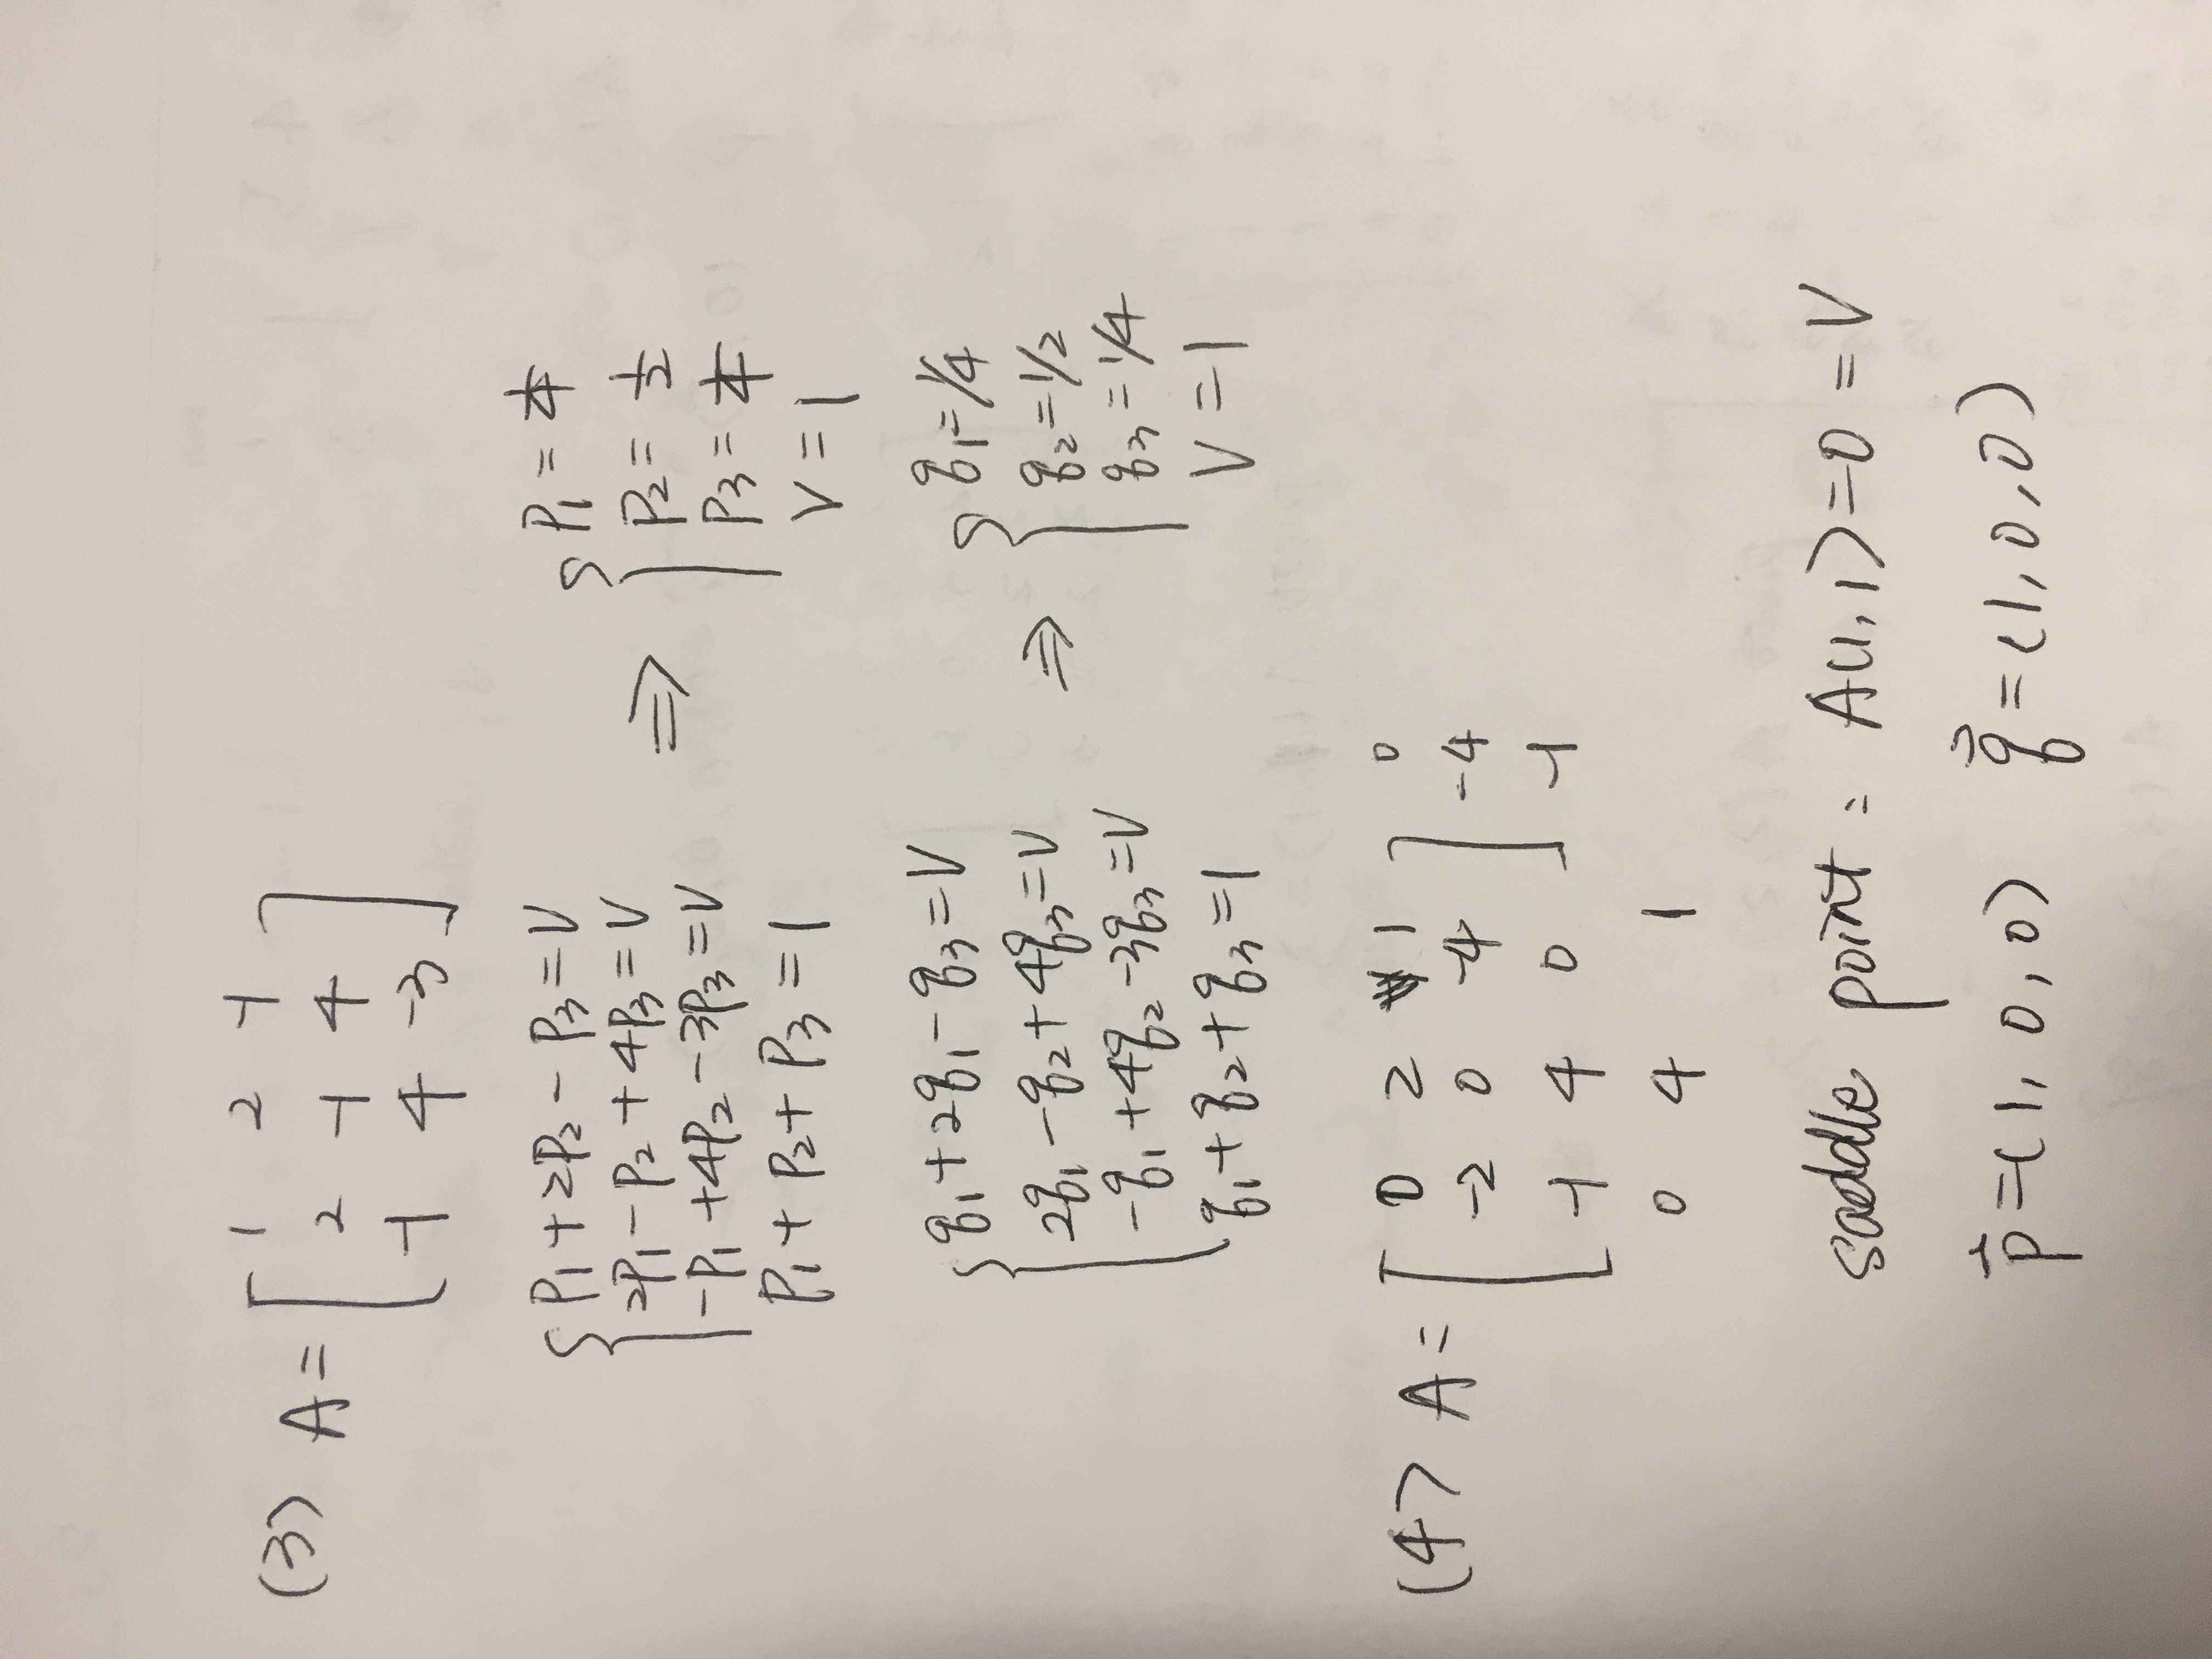 (3) A = [ 1 2 -1
2 -1 4
-1 4 -3 ]
{ p₁ + 2p₂ - p₃ = V
2p₁ - p₂ + 4p₃ = V
-p₁ + 4p₂ - 3p₃ = V
p₁ + p₂ + p₃ = 1
⇒ { p₁ = 1/4
p₂ = 1/2
p₃ = 1/4
V = 1
{ q₁ + 2q₁ - q₃ = V
2q₁ - q₂ + 4q₃ = V
-q₁ + 4q₂ - 3q₃ = V
q₁ + q₂ + q₃ = 1
⇒ { q₁ = 1/4
q₂ = 1/2
q₃ = 1/4
V = 1
(4) A = [ 0 2 1 ] 0
-2 0 -4 -4
-1 4 0 -1
0 4 1
saddle point : A(1,1) = 0 = V
p⃗ = (1, 0, 0) q⃗ = (1, 0, 0)